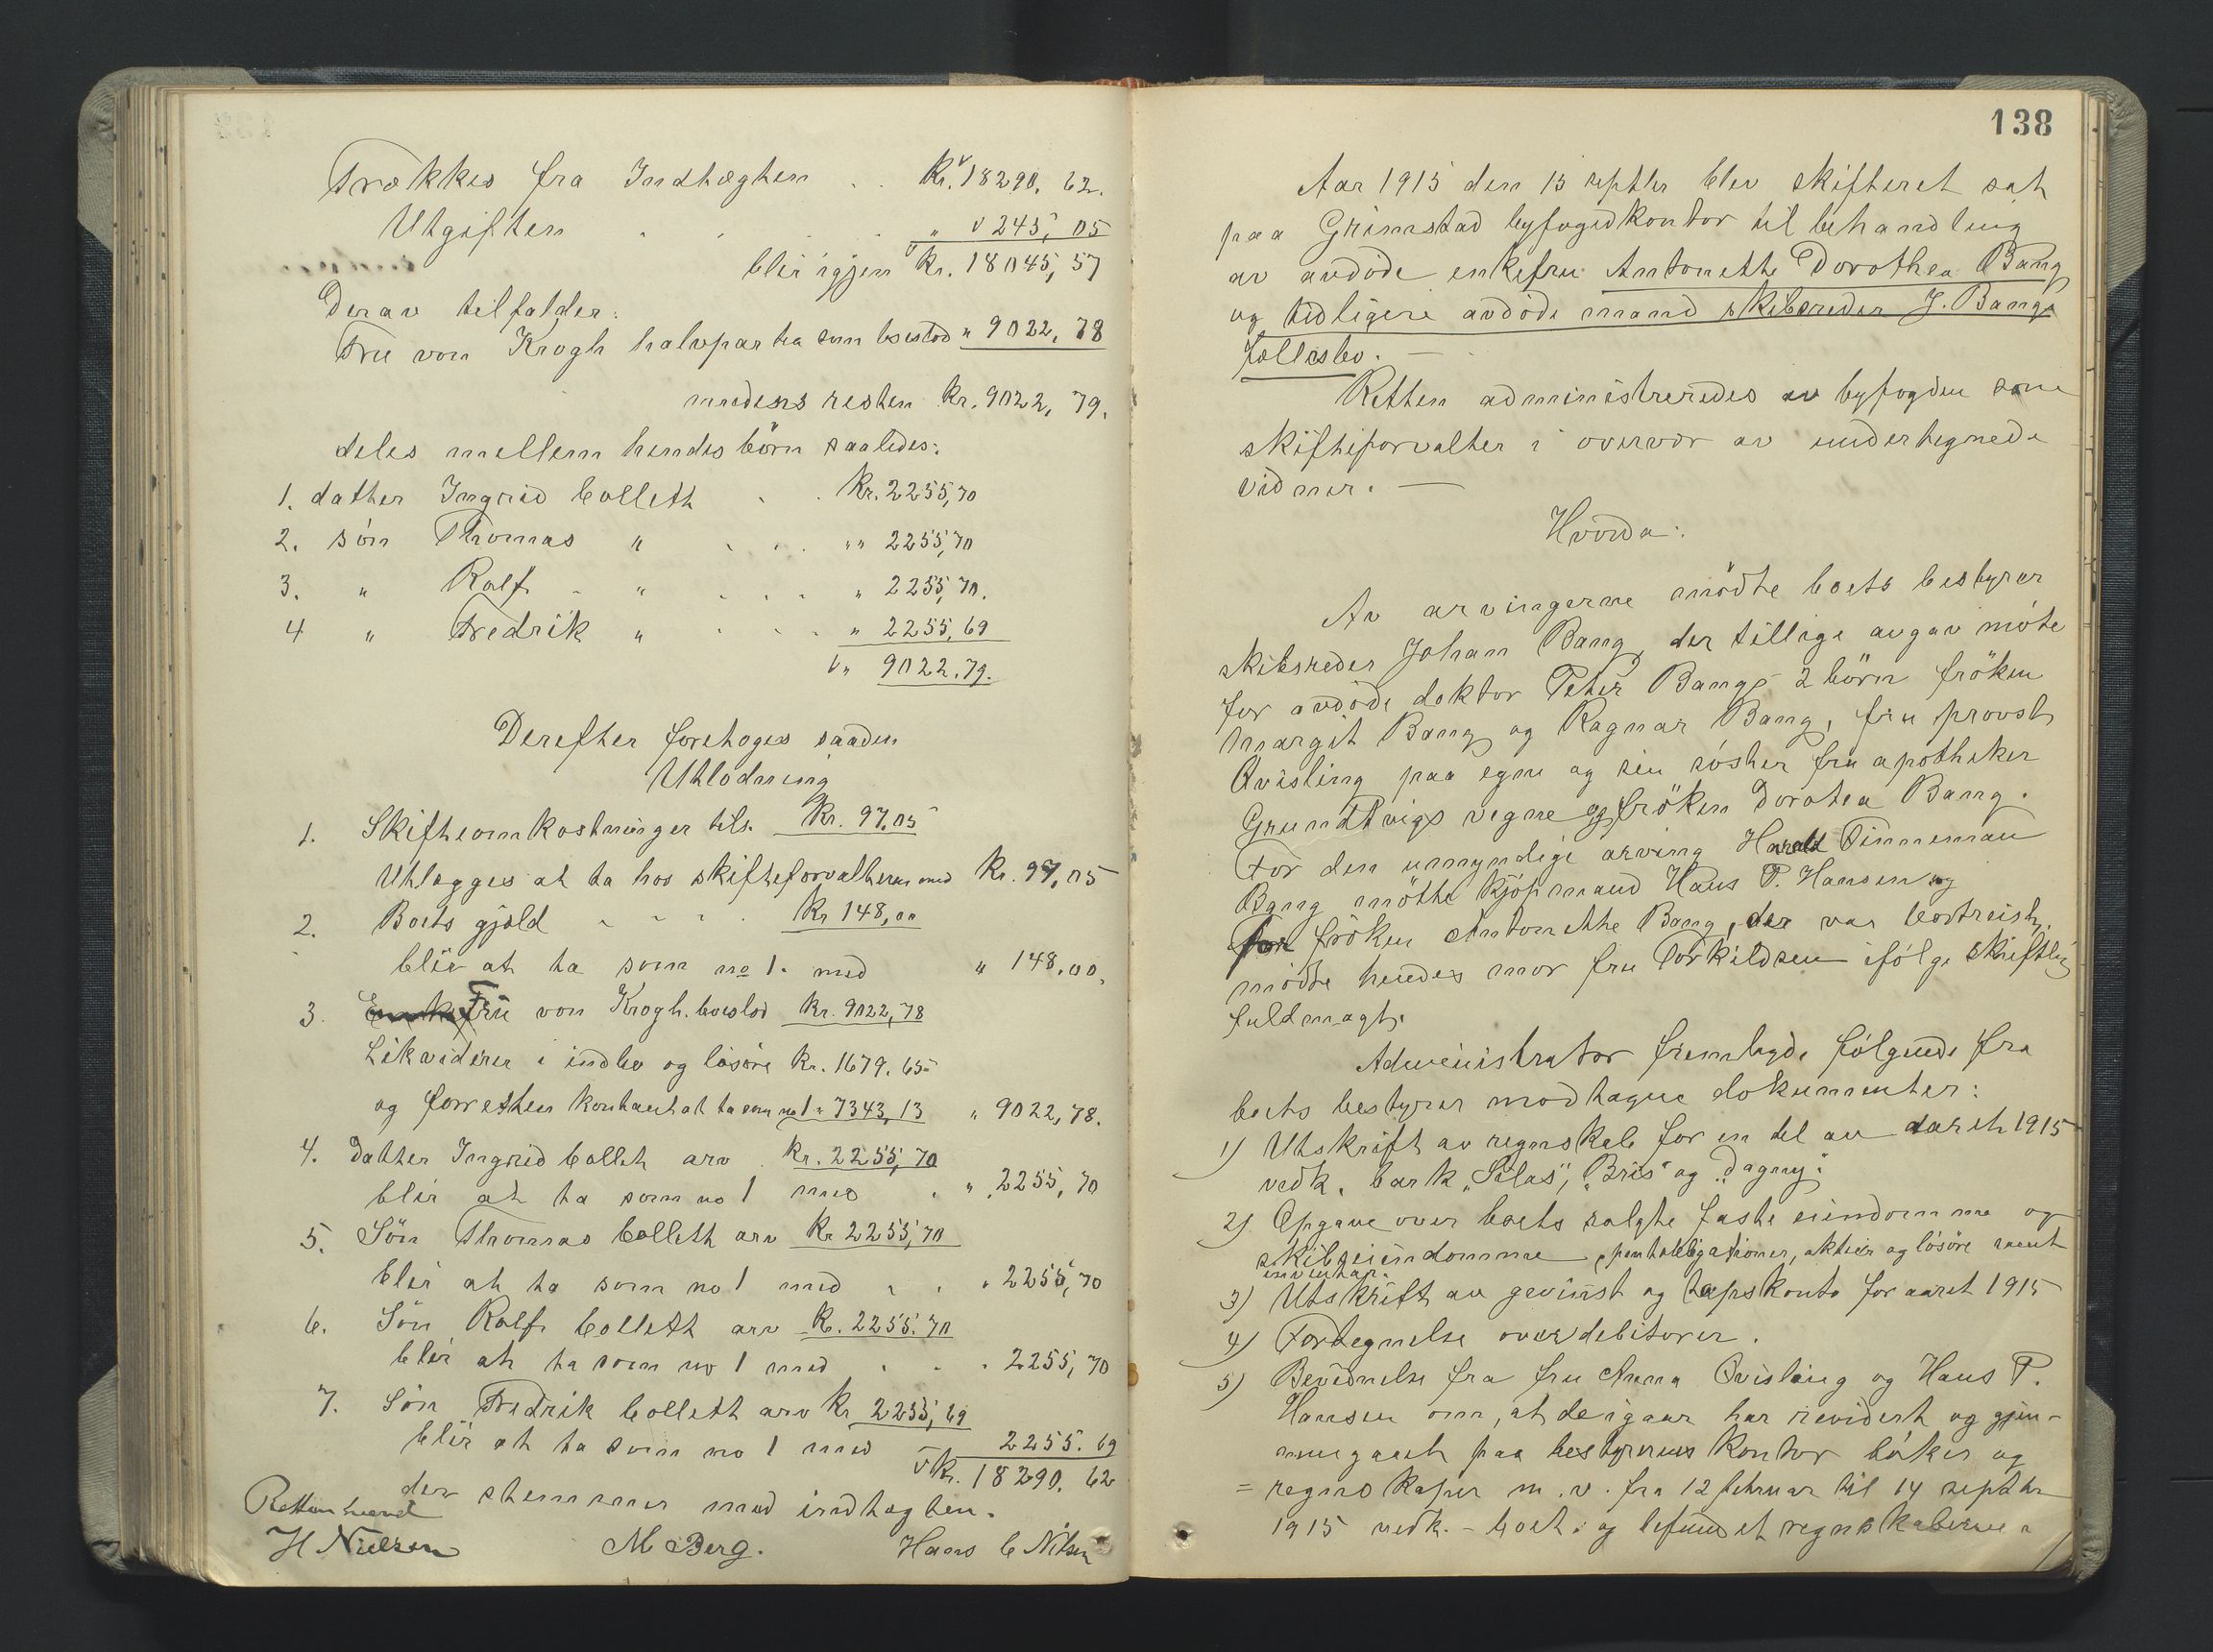 Trækkes fra Indtægten . . Kr. 18290, 62.
Utgiften . . . . " 245, 05
blir igjen Kr. 18045, 57
Derav tilfalder:
Fru von Krogh halvparten som boeslod " 9022, 78
medens resten Kr. 9022, 79.
deles mellem hendes børn saaledes:
1. datter Ingrid Collett . . Kr. 2255,70
2. søn Thomas " . . . " 2255,70
3. " Rolf " . . . " 2255,70.
4 " Fredrik " . . . " 2255,69
" 9022.79.
Derefter foretoges saadan
Utlodning
1. Skifteomkostninger tils. Kr. 97.05
Utlægges at ta hos skifteforvalteren med Kr. 97,05
2. Boets gjæld . . . . Kr 148,00
blir at ta som no 1. med " 148,00.
3. Fru von Krogh. boeslod Kr. 9022,78
Likviderer i indbo og løsøre Kr. 1679.65
og forresten kontant at ta som no 1 " 7343,13 " 9022,78.
4. Datter Ingrid Collett arv . Kr. 2255,70
blir at ta som no 1 med . " 2255,70
5. Søn Thomas Collett arv Kr 2255,70
blir at ta som no 1 med . . " 2255,70
6. Søn Rolf Collett arv Kr. 2255.70
blir at ta som no 1 med . . . 2255,70
7. Søn Fredrik Collett arv Kr 2255,69
blir at ta som no 1 med 2255.69
Kr. 18290.62
der stemmer med indtægten.
Retten hævet
H Nielsen M Berg. Hans C Nilsen
138
Aar 1915 den 15 septbr blev skifteret sat
paa Grimstad byfogedkontor til behandling
av avdøde enkefru Antonette Dorothea Bang
og tidligere avdøde mand skibsreder J. Bangs
fællesbo. —
Retten administreredes av byfogden som
skifteforvalter i overvær av undertegnede
vidner. —
Hvorda:
Av arvingerne mødte boets bestyrer
skibsreder Johan Bang, der tillige avgav møte
for avdøde doktor Peter Bangs 2 børn frøken
Margit Bang og Ragnar Bang, fru provst
Qvisling paa egne og sin søster fru apotheker
Grundtvigs vegne og frøken Dorotea Bang.
For den umyndige arving Harald Tinneman
Bang møtte kjøpmand Hans P. Hansen og
for frøken Antonette Bang, der var bortreist,
mødte hendes mor fru Torkildsen ifølge skriftlig
fuldmagt.
Administrator fremlagde følgende fra
boets bestyrer modtagne dokumenter:
1) Utskrift av regnskab for en del av aaret 1915
vedk. bark "Silas", "Bris" og "Dagny".
2) Opgave over boets solgte faste eiendomme og
skibseiendomme, pantobligationer, aktier og løsøre samt
inventar.
3) Utskrift av gevinst og tapskonto for aaret 1915
4) Fortegnelse over debitorer.
5) Bevidnelse fra fru Anna Qvisling og Hans P.
Hansen om, at de igaar har revidert og gjen-
nemgaaet paa bestyrerens kontor bøker og
= regnskaper m. v. fra 12 februar til 14 septbr
1915 vedk. boet. og befundet regnskaberne